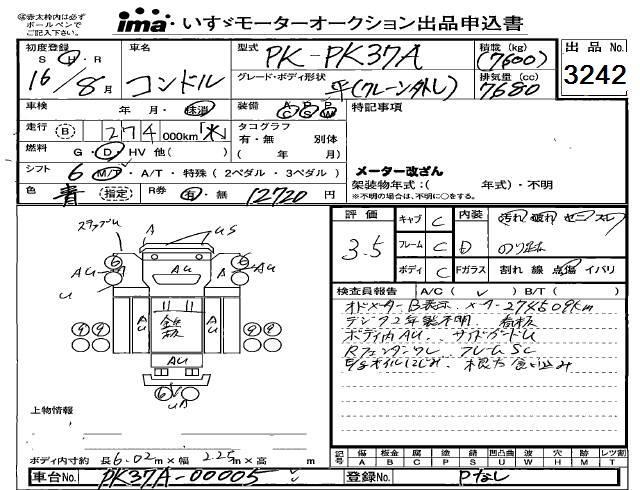 ※赤太枠内は必ず
ボールペンで
ご記入下さい。
ima いすゞモーターオークション出品申込書
初度登録 車名 型式 PK-PK37A 積載(kg) (7600) 出品No. 3242
S・H・R 16/8月 コンドル グレード・ボディ形状 平(クレーン外し) 排気量(cc) 7680
車検 年・月・抹消 装備 特記事項
走行 (B) 274 000km「不」 タコグラフ
有・無 別体
燃料 G・D・HV 他( ) ( 年 月)
シフト 6 M/T・A/T・特殊(2ペダル・3ペダル) メーター改ざん
架装物年式:( 年式)・不明
※不明の場合は、不明に○をする。
色 青 (指定) R券 有・無 12720円
評価 3.5 キャブ C 内装 汚れ 破れ
フレーム C D のり跡
ボディ C Fガラス 割れ 線 点傷 イバリ
検査員報告 A/C( ✓ ) B/T( )
オドメーターB表示 メーター274509km
デジタコ年製不明 看板
ボディ内AU サイドガードU
Rフェンダーワレ フレームSC
E/gオイルにじみ
スタップU A US
6 AU A 6 AU
U
9 9 A U 鉄板 A U 9 9
AU
UA
上物情報
ボディ内寸約 長6.02m×幅2.25m×高 m
記号 傷 A 板金 B 腐 C 塗 P 錆 S 凹凸曲 U ボコ W 穴 H 欠 M レツ割 T
車台No. PK37A-00005 登録No. Pなし